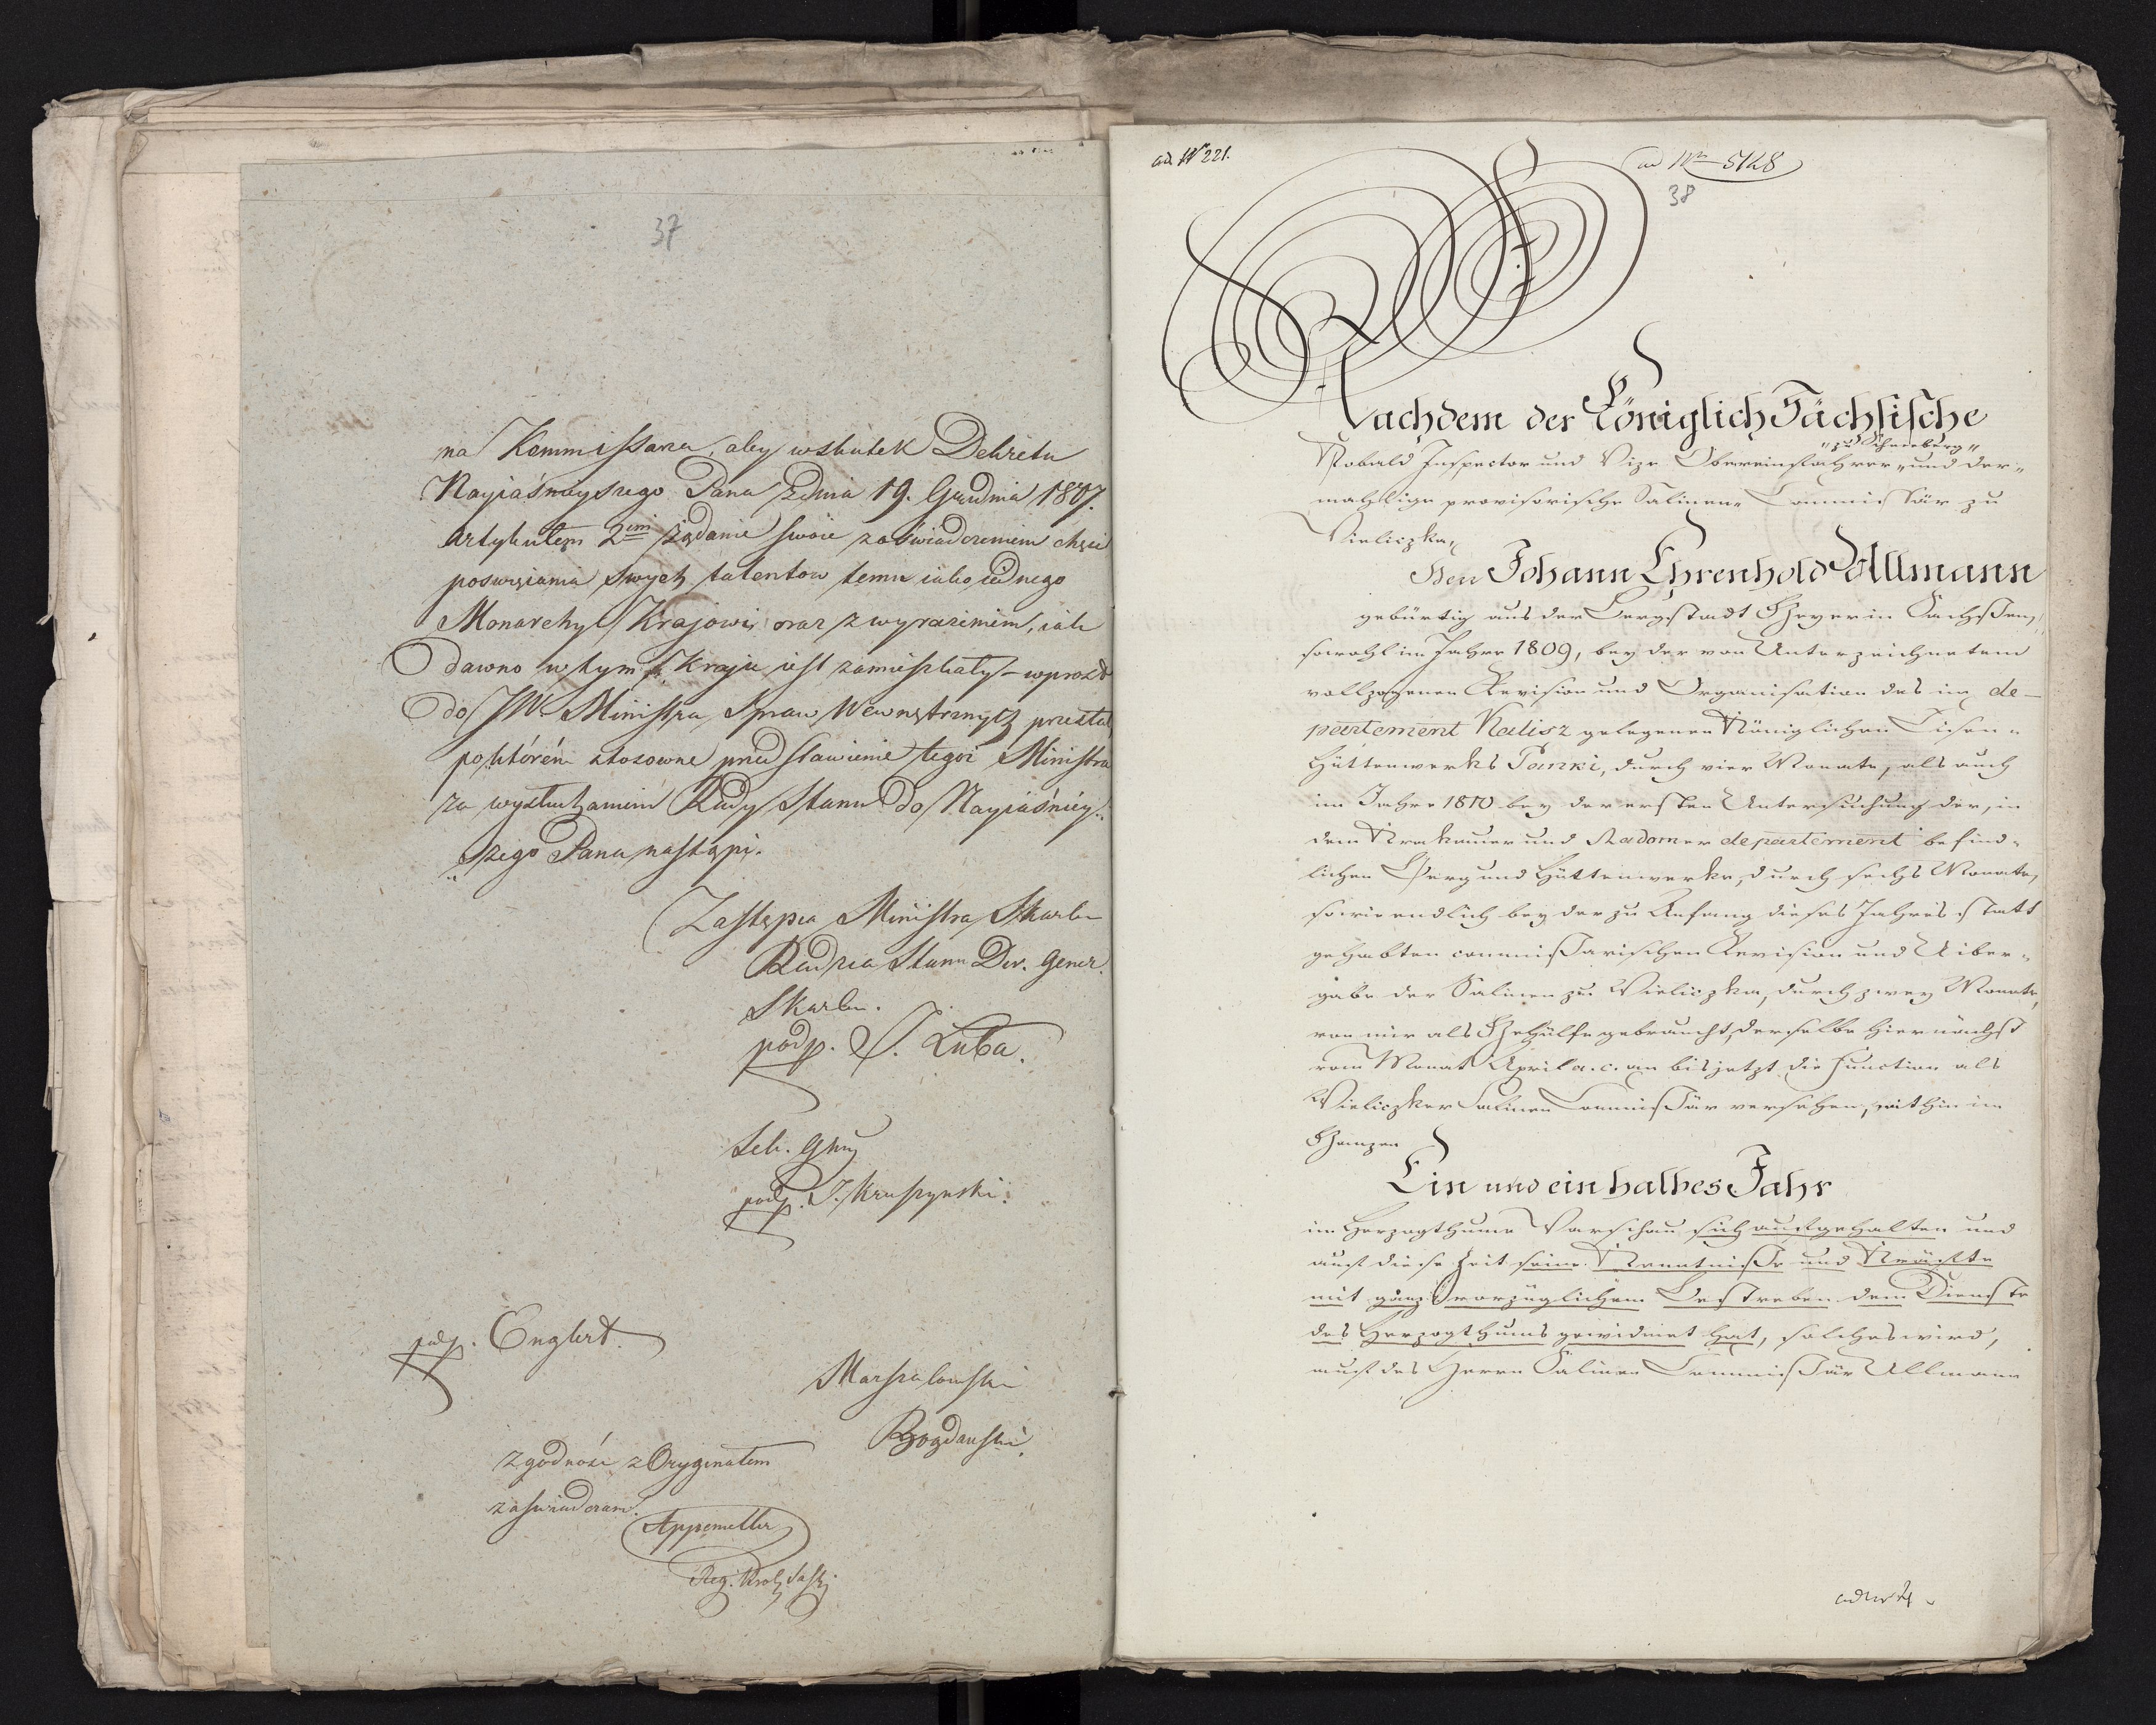 37
na Kommissarza, aby wskutek Dekretu
Nayiaśnieyszego Pana z dnia 19. Grudnia 1807.
Artykułem 2im żądanie swoie zaświadczeniem chęci
poswięcania swych talentow temu iako iednego
Monarchy Krajowi, oraz z wyrażeniem, iak
dawno w tym kraju iest zamieszkały – wprost
do JW. Ministra Spraw Wewnętrznych przesłał
po którém stosowne przedstawienie tegoż Ministra
za wysłuchaniem Rady Stanu do Nayiaśniey-
szego Pana nastąpi.
Zastępca Ministra Skarbu
Radzca Stanu Dyr. Gener.
Skarbu.
podp. J. Łuba.
Sek. Gnry
podp. J. Kruszynski.
podp. Englert.
Marszałowski
Bogdański.
Zgodność z Oryginałem
zaświadczam.
Appemeller
ad No 221.
ad No 5148
38
Nachdem der Königlich Sächsische
"zu Schneeberg"
Kobald Inspector und Vize Obereinfahrer, und der-
mahlige provisorische Salinen-Commissär zu
Wieliczka,
Herr Johann Ehrenhold Ullmann
gebürtig aus der Bergstadt Geyer in Sachsen,
sowohl im Jahre 1809, bey der von Unterzeichnetem
vollzogenen Revision und Organisation des im de-
partement Kalisz gelegenen Königlichen Eisen-
Hüttenwerks Panki, durch vier Monate, als auch
im Jahre 1810 bey der ersten Untersuchung der, in
dem Krakauer und Radomer departement befind-
lichen Berg und Hüttenwerke, durch sechs Monate,
so wie endlich bey der zu Anfang dieses Jahres statt
gehabten commissarischen Revision und Uiber-
gabe der Salinen zu Wieliczka, durch zwey Monate,
von mir als Gehülfe gebraucht, derselbe hiernächst
vom Monat April a. c. an bis jetzt die Function als
Wieliczker Salinen Commissär versehen, mithin im
Ganzen
Ein und ein halbes Jahr
im Herzogthume Warschau sich aufgehalten und
auf diese Zeit seine Kenntnisse und Kräfte
mit ganz vorzüglichem Bestreben dem Dienste
des Herzogthums gewidmet hat, solches wird,
auf des Herrn Salinen Commissär Ullmann